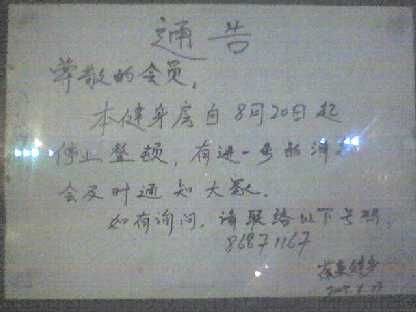 通告
尊敬的会员,
本健身房自8月20日起
停止整顿,有进一步的消
会及时通知大家.
如有询问,请联络以下号码.
86871167
健身